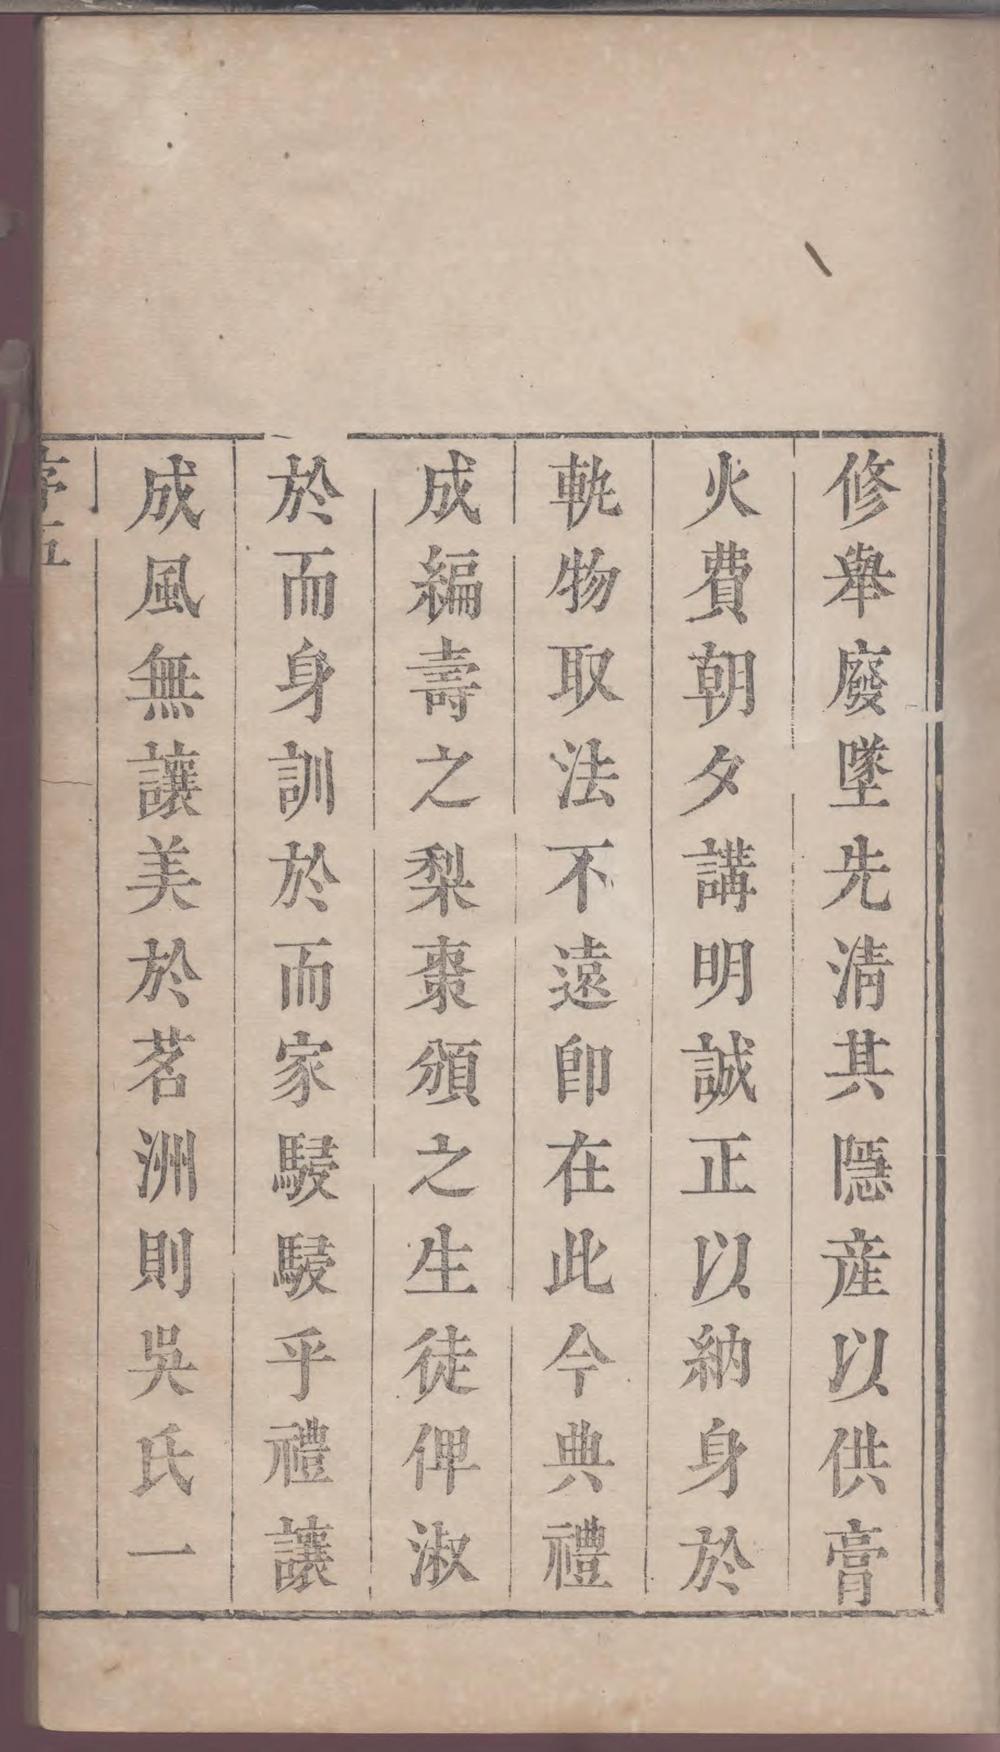 修舉廢墜先淸其隱産以供膏
火費朝夕講明誠正以納身於
軌物取法不遠卽在此今典禮
成編壽之梨棗頒之生徒俾淑
於而身訓於而家駸駸乎禮讓
成風無讓美於茗洲則吳氏一
序五